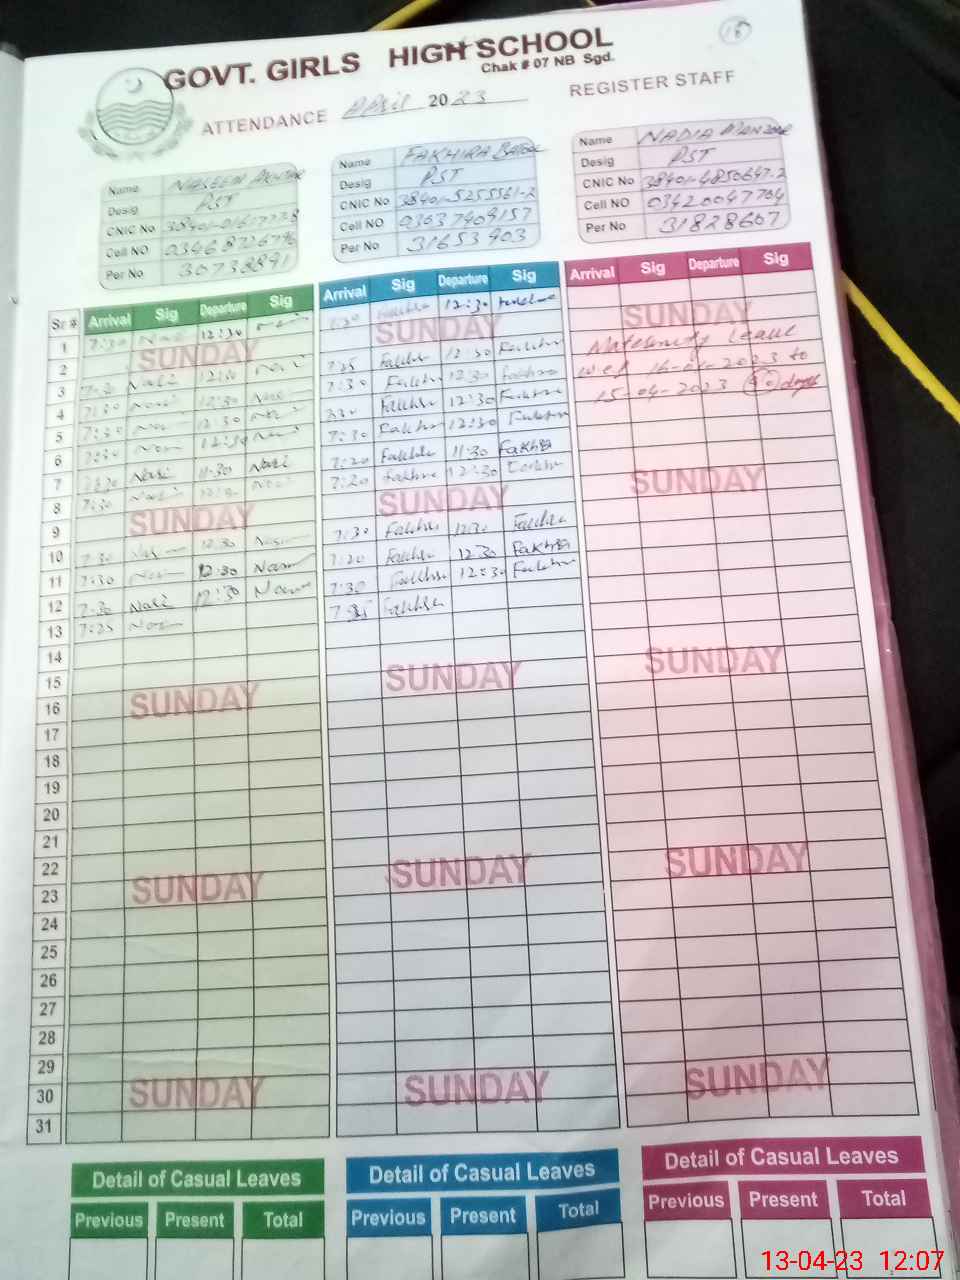 18
GOVT. GIRLS HIGH SCHOOL
Chak # 07 NB Sgd.
ATTENDANCE April 2023 REGISTER STAFF
Name NASEEM AKHTAR
Desig PST
CNIC No
Cell NO
Per No 30738891
Name FAKHIRA BATOOL
Desig PST
CNIC No 38401-5255561-2
Cell NO 03037409157
Per No 31653903
Name NADIA MANZOOR
Desig PST
CNIC No 38401-4850647-2
Cell NO 03420047704
Per No 31828607
Sr # Arrival Sig Departure Sig Arrival Sig Departure Sig Arrival Sig Departure Sig
1 7:30 12:30 7:30 Fakhra 12:30 Fakhra
2 SUNDAY SUNDAY SUNDAY
3 7:30 Nasi 12:30 Nasi 7:25 Fakhra 12:30 Fakhra Maternity Leave
4 7:30 Nasi 12:30 Nasi 7:30 Fakhra 12:30 Fakhra w.e.f 16-01-2023 to
5 7:30 12:30 7:30 Fakhra 12:30 Fakhra 15-04-2023 (90) days
6 7:30 12:30 7:30 Fakhra 12:30 Fakhra
7 7:30 Nasi 11:30 Nasi 7:20 Fakhra 11:30 Fakhra
8 7:30 Nasi 12:30 Nasi 7:20 Fakhra 12:30 Fakhra
9 SUNDAY SUNDAY SUNDAY
10 7:30 Nasi 12:30 Nasi 7:30 Fakhra 12:30 Fakhra
11 7:30 12:30 7:20 Fakhra 12:30 Fakhra
12 7:30 Nasi 12:30 7:30 Fakhra 12:30 Fakhra
13 7:25 Fakhra
14
15
16 SUNDAY SUNDAY SUNDAY
17
18
19
20
21
22
23 SUNDAY SUNDAY SUNDAY
24
25
26
27
28
29
30 SUNDAY SUNDAY SUNDAY
31
Detail of Casual Leaves Detail of Casual Leaves Detail of Casual Leaves
Previous Present Total Previous Present Total Previous Present Total
13-04-23 12:07